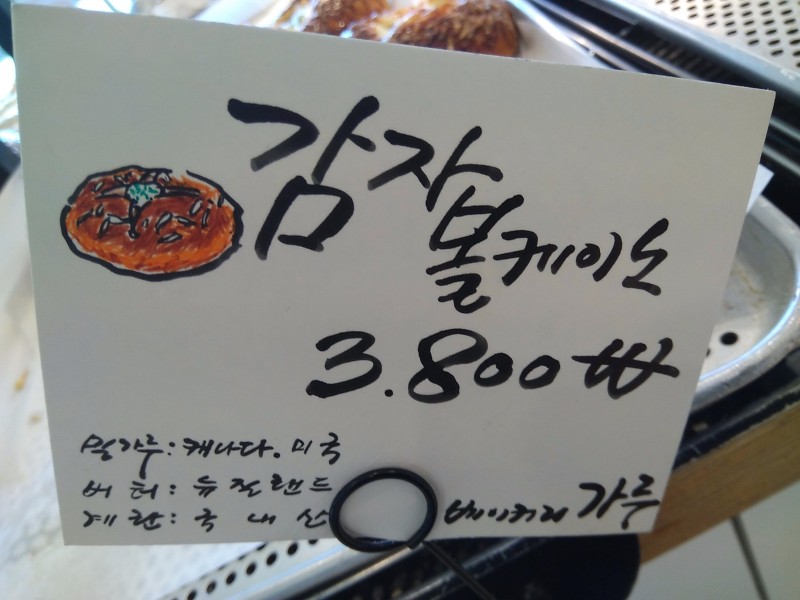 감자
볼케이노
3.800₩
밀가루: 캐나다. 미국
버터: 뉴질랜드
계란: 국내산
베이커리 가루